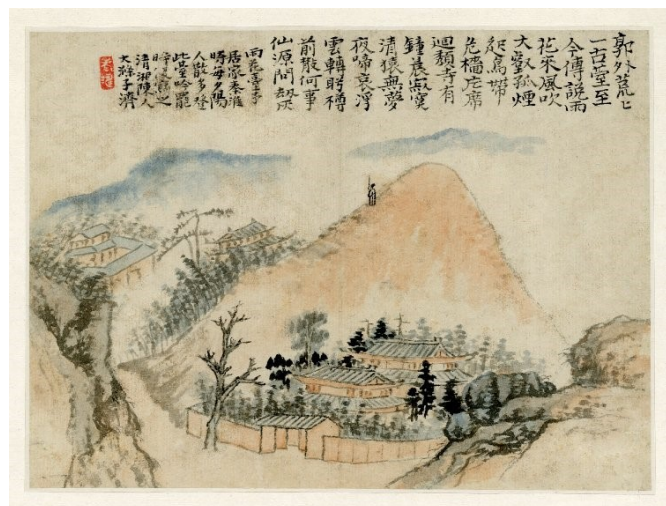 郭外荒荒
一古臺至
今傳說雨
花來風吹
大壑孤煙
起鳥帶
危檣片席
迴頹寺有
鐘晨寂寞
清猿無夢
夜啼哀浮
雲轉眄樽
前散何事
仙源問劫灰
雨花臺予
居家秦淮
時每夕陽
人散多登
此臺吟罷
時復寫之
清湘陳人
大滌子濟